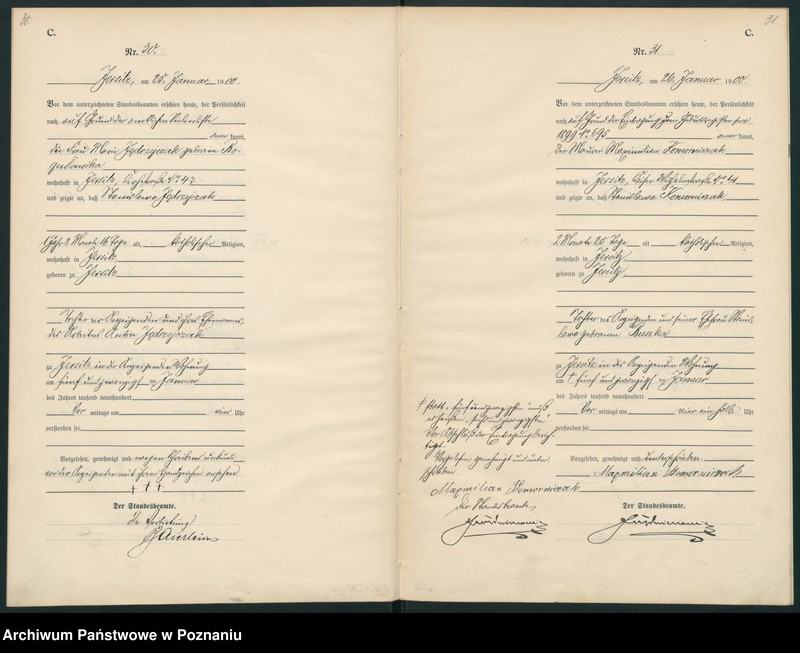 30
C.
Nr. 30.
Jersitz, am 25. Januar 1900.
Vor dem unterzeichneten Standesbeamten erschien heute, der Persönlichkeit
nach auf Grund der
kannt,
die Frau Marie Jędrzejczak geborene
wohnhaft in Jersitz,
und zeigte an, daß Stanislawa Jędrzejczak
1 Jahr 2 Monate 16 Tage alt, katholischer Religion,
wohnhaft in Jersitz
geboren zu Jersitz
Tochter der Anzeigenden und ihres Ehemannes,
des Arbeiters Anton Jędrzejczak
zu Jersitz in der Anzeigenden Wohnung
am fünf und zwanzigsten Januar
des Jahres tausend neunhundert
Vor mittags um vier Uhr
verstorben sei.
Vorgelesen, genehmigt und wegen Schreibensunkunde
von der Anzeigenden mit ihrem Handzeichen versehen
+ + +
Der Standesbeamte.
In Vertretung
31
C.
Nr. 31.
Jersitz, am 26. Januar 1900
Vor dem unterzeichneten Standesbeamten erschien heute, der Persönlichkeit
nach auf Grund der Eintragung zum Geburtsregister pro
1899 No 695 kannt,
der Maurer Maximilian Komorniczak
wohnhaft in Jersitz, Kaiser Wilhelmstraße No
und zeigte an, daß Stanislawa Komorniczak
2 Monate 25 Tage alt katholischer Religion,
wohnhaft in Jersitz
geboren zu Jersitz
Tochter des Anzeigenden und seiner Ehefrau Stanis-
lawa geborenen
zu Jersitz in des Anzeigenden Wohnung
am + fünf und zwanzigsten Januar
des Jahres tausend neunhundert
Vor mittags um vier ein halb Uhr
verstorben sei.
Vorgelesen, genehmigt und unterschrieben.
Maximilian Komorniczak
Der Standesbeamte.
+ statt "fünfundzwanzigsten" muß
es heißen "sechsundzwanzigsten"
Vor Abschluß der Eintragung berich-
tigt.
Vorgelesen genehmigt und unter-
schrieben.
Maximilian Komorniczak
Der Standesbeamte
Archiwum Państwowe w Poznaniu